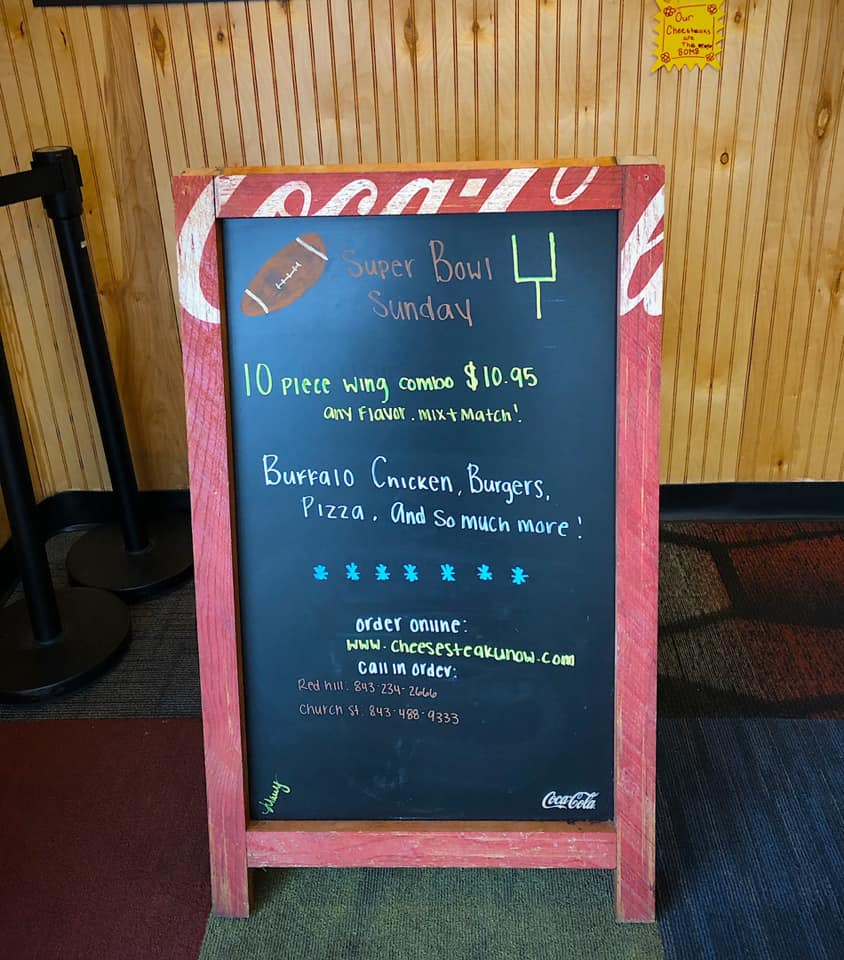 Our
Cheesteaks
are
The
BOMB
Coca-Cola
Super Bowl
Sunday
10 piece wing combo $10.95
any Flavor. mix + Match!
Buffalo Chicken, Burgers,
Pizza, and so much more!
order online:
www.cheesesteakunow.com
Call in order:
Red hill: 843-234-2666
Church St. 843-488-9333
Coca-Cola